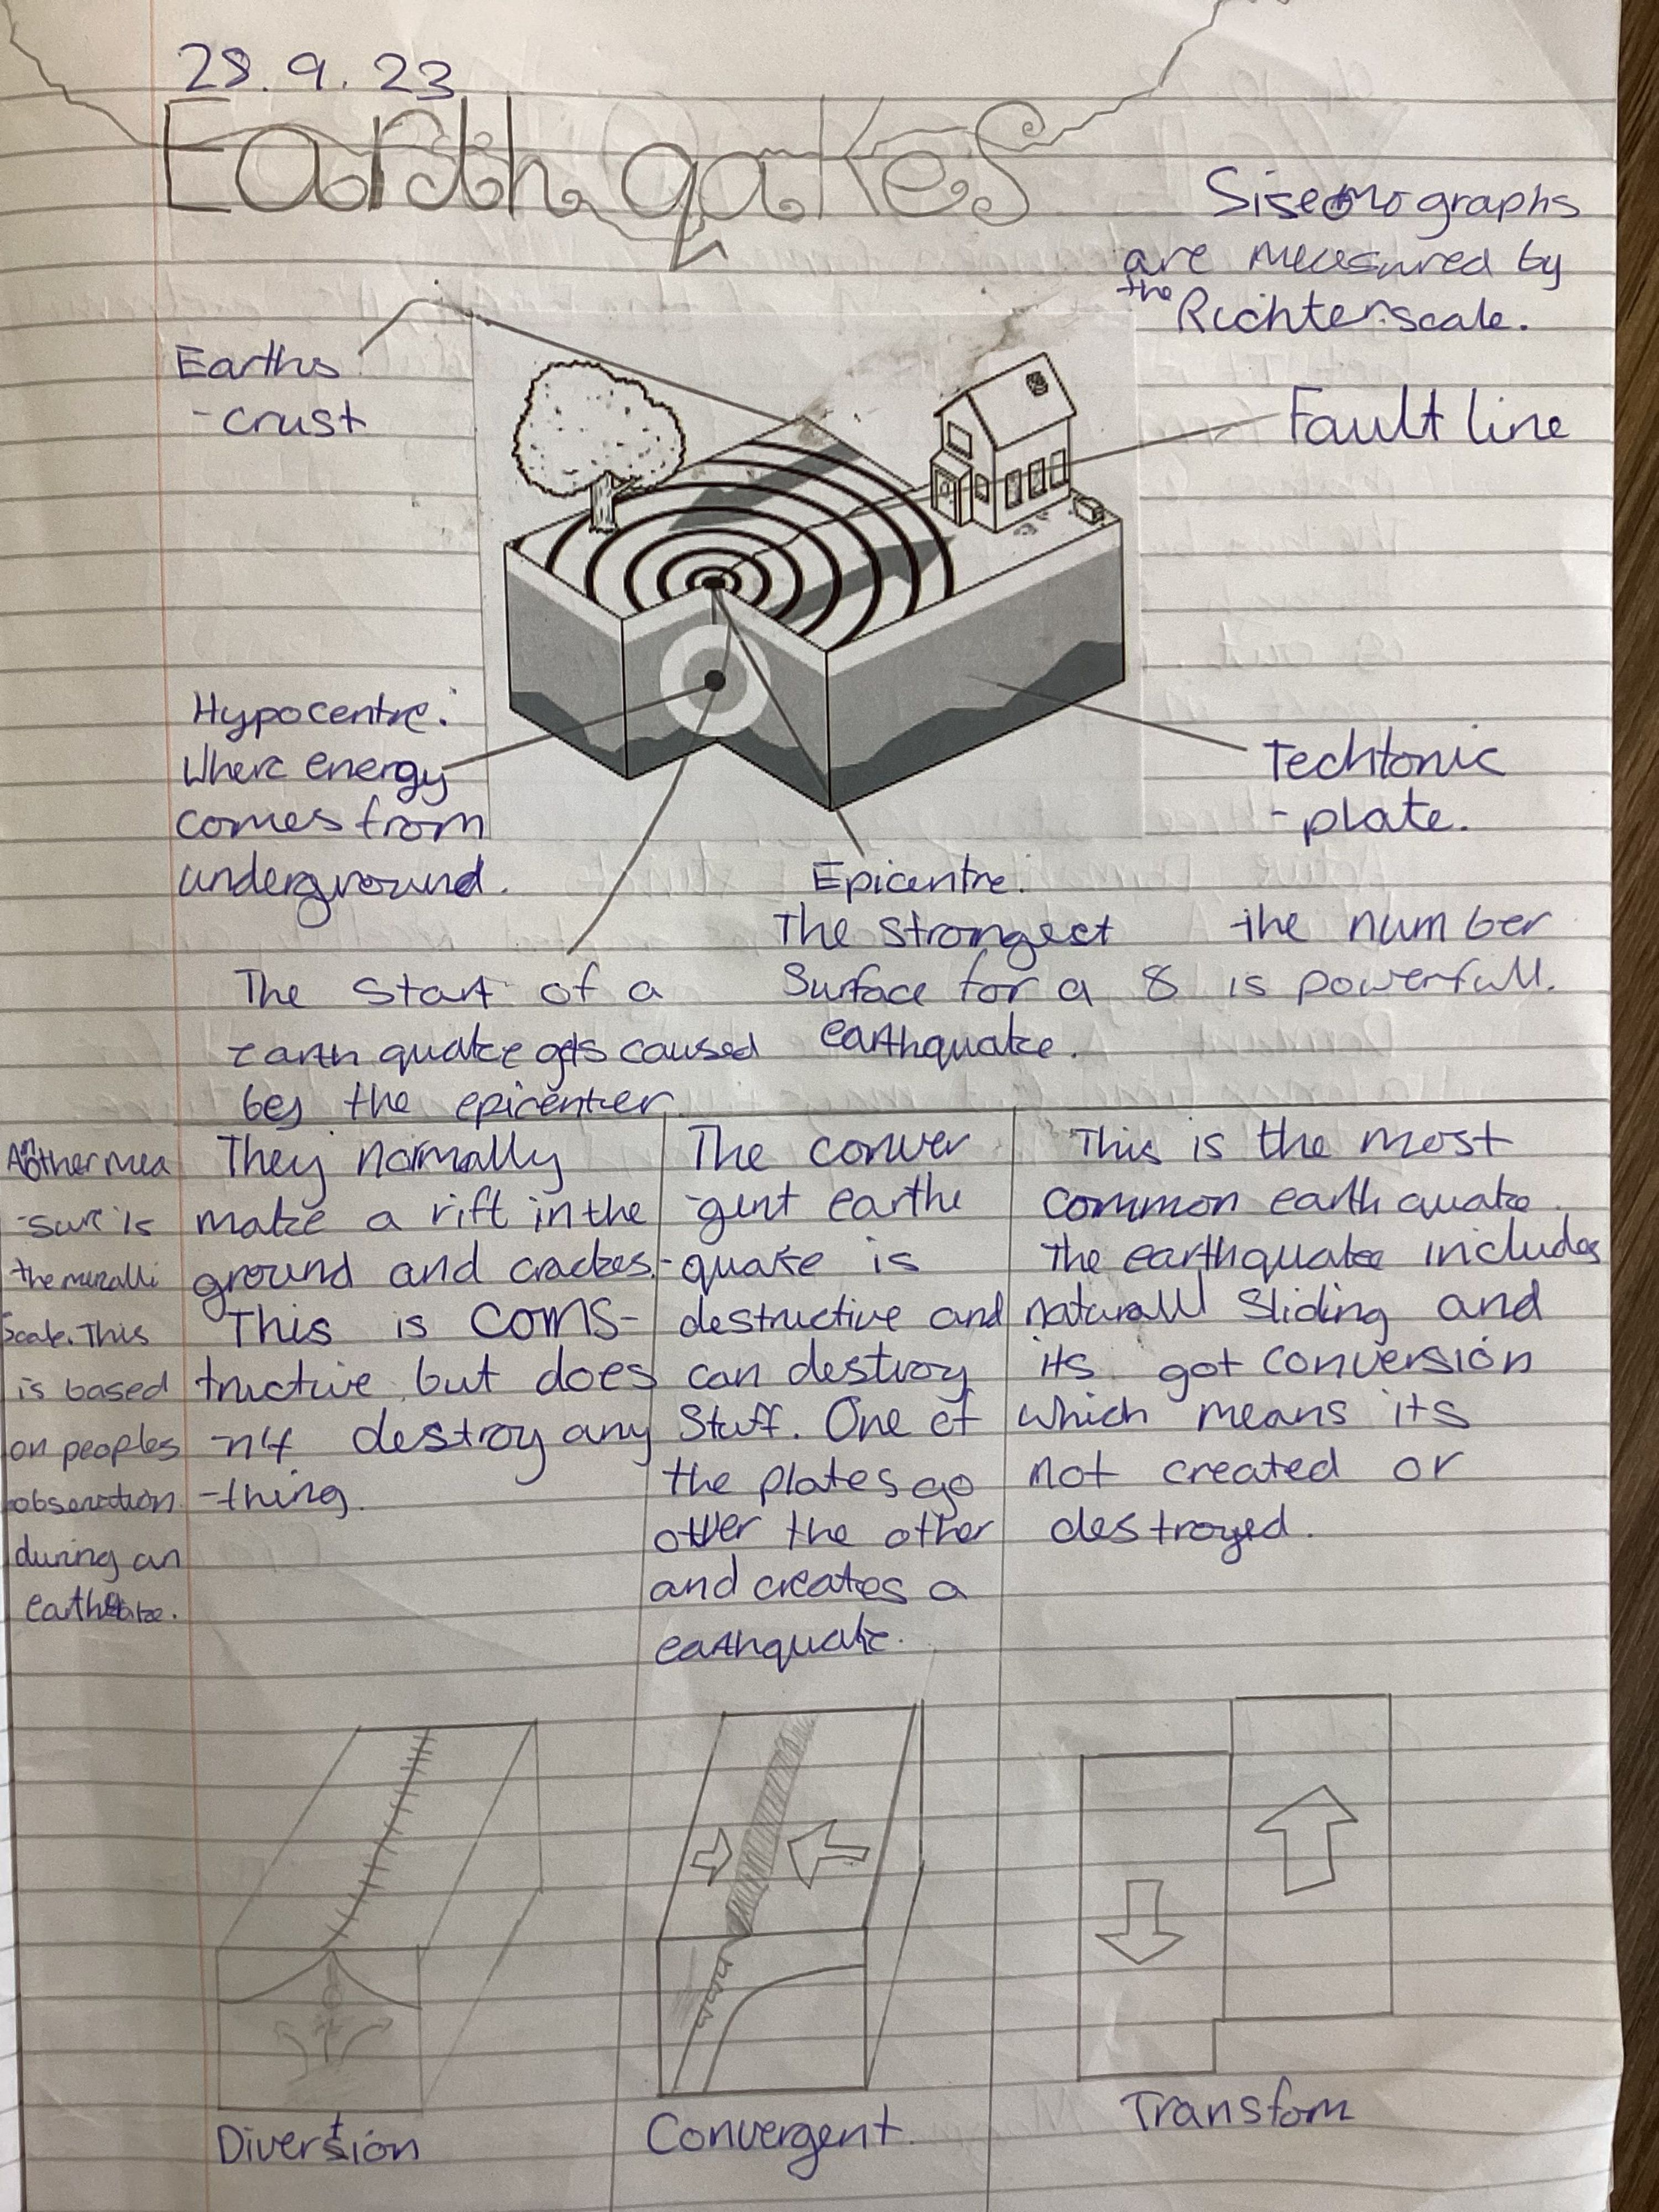 28.9.23
Earth qakes
Sisemographs
are measured by
the Richter scale.
Earths
-crust
Fault line
Hypocentre:
Where energy
comes from
underground.
Techtonic
-plate.
Epicentre:
The strongest
surface for a
earthquake.
the number
8 is powerfull.
The start of a
earth quake gets caused
bey the epicenter
Another mea
-sure is
the muralli
Scale. This
is based
on peoples
observation
during an
They normally
make a rift in the
ground and crackes.
This is coms-
tructive but does
-n4 destroy any
-thing.
The conver
-gent earthe
-quake is
destructive and
can destroy
stuff. One of
the plates go
over the other
and creates a
earthquake.
This is the most
common earth quake.
The earthquake includes
naturall sliding and
its got conversion
which means its
not created or
destroyed.
Diverstion
Convergent.
Transfom